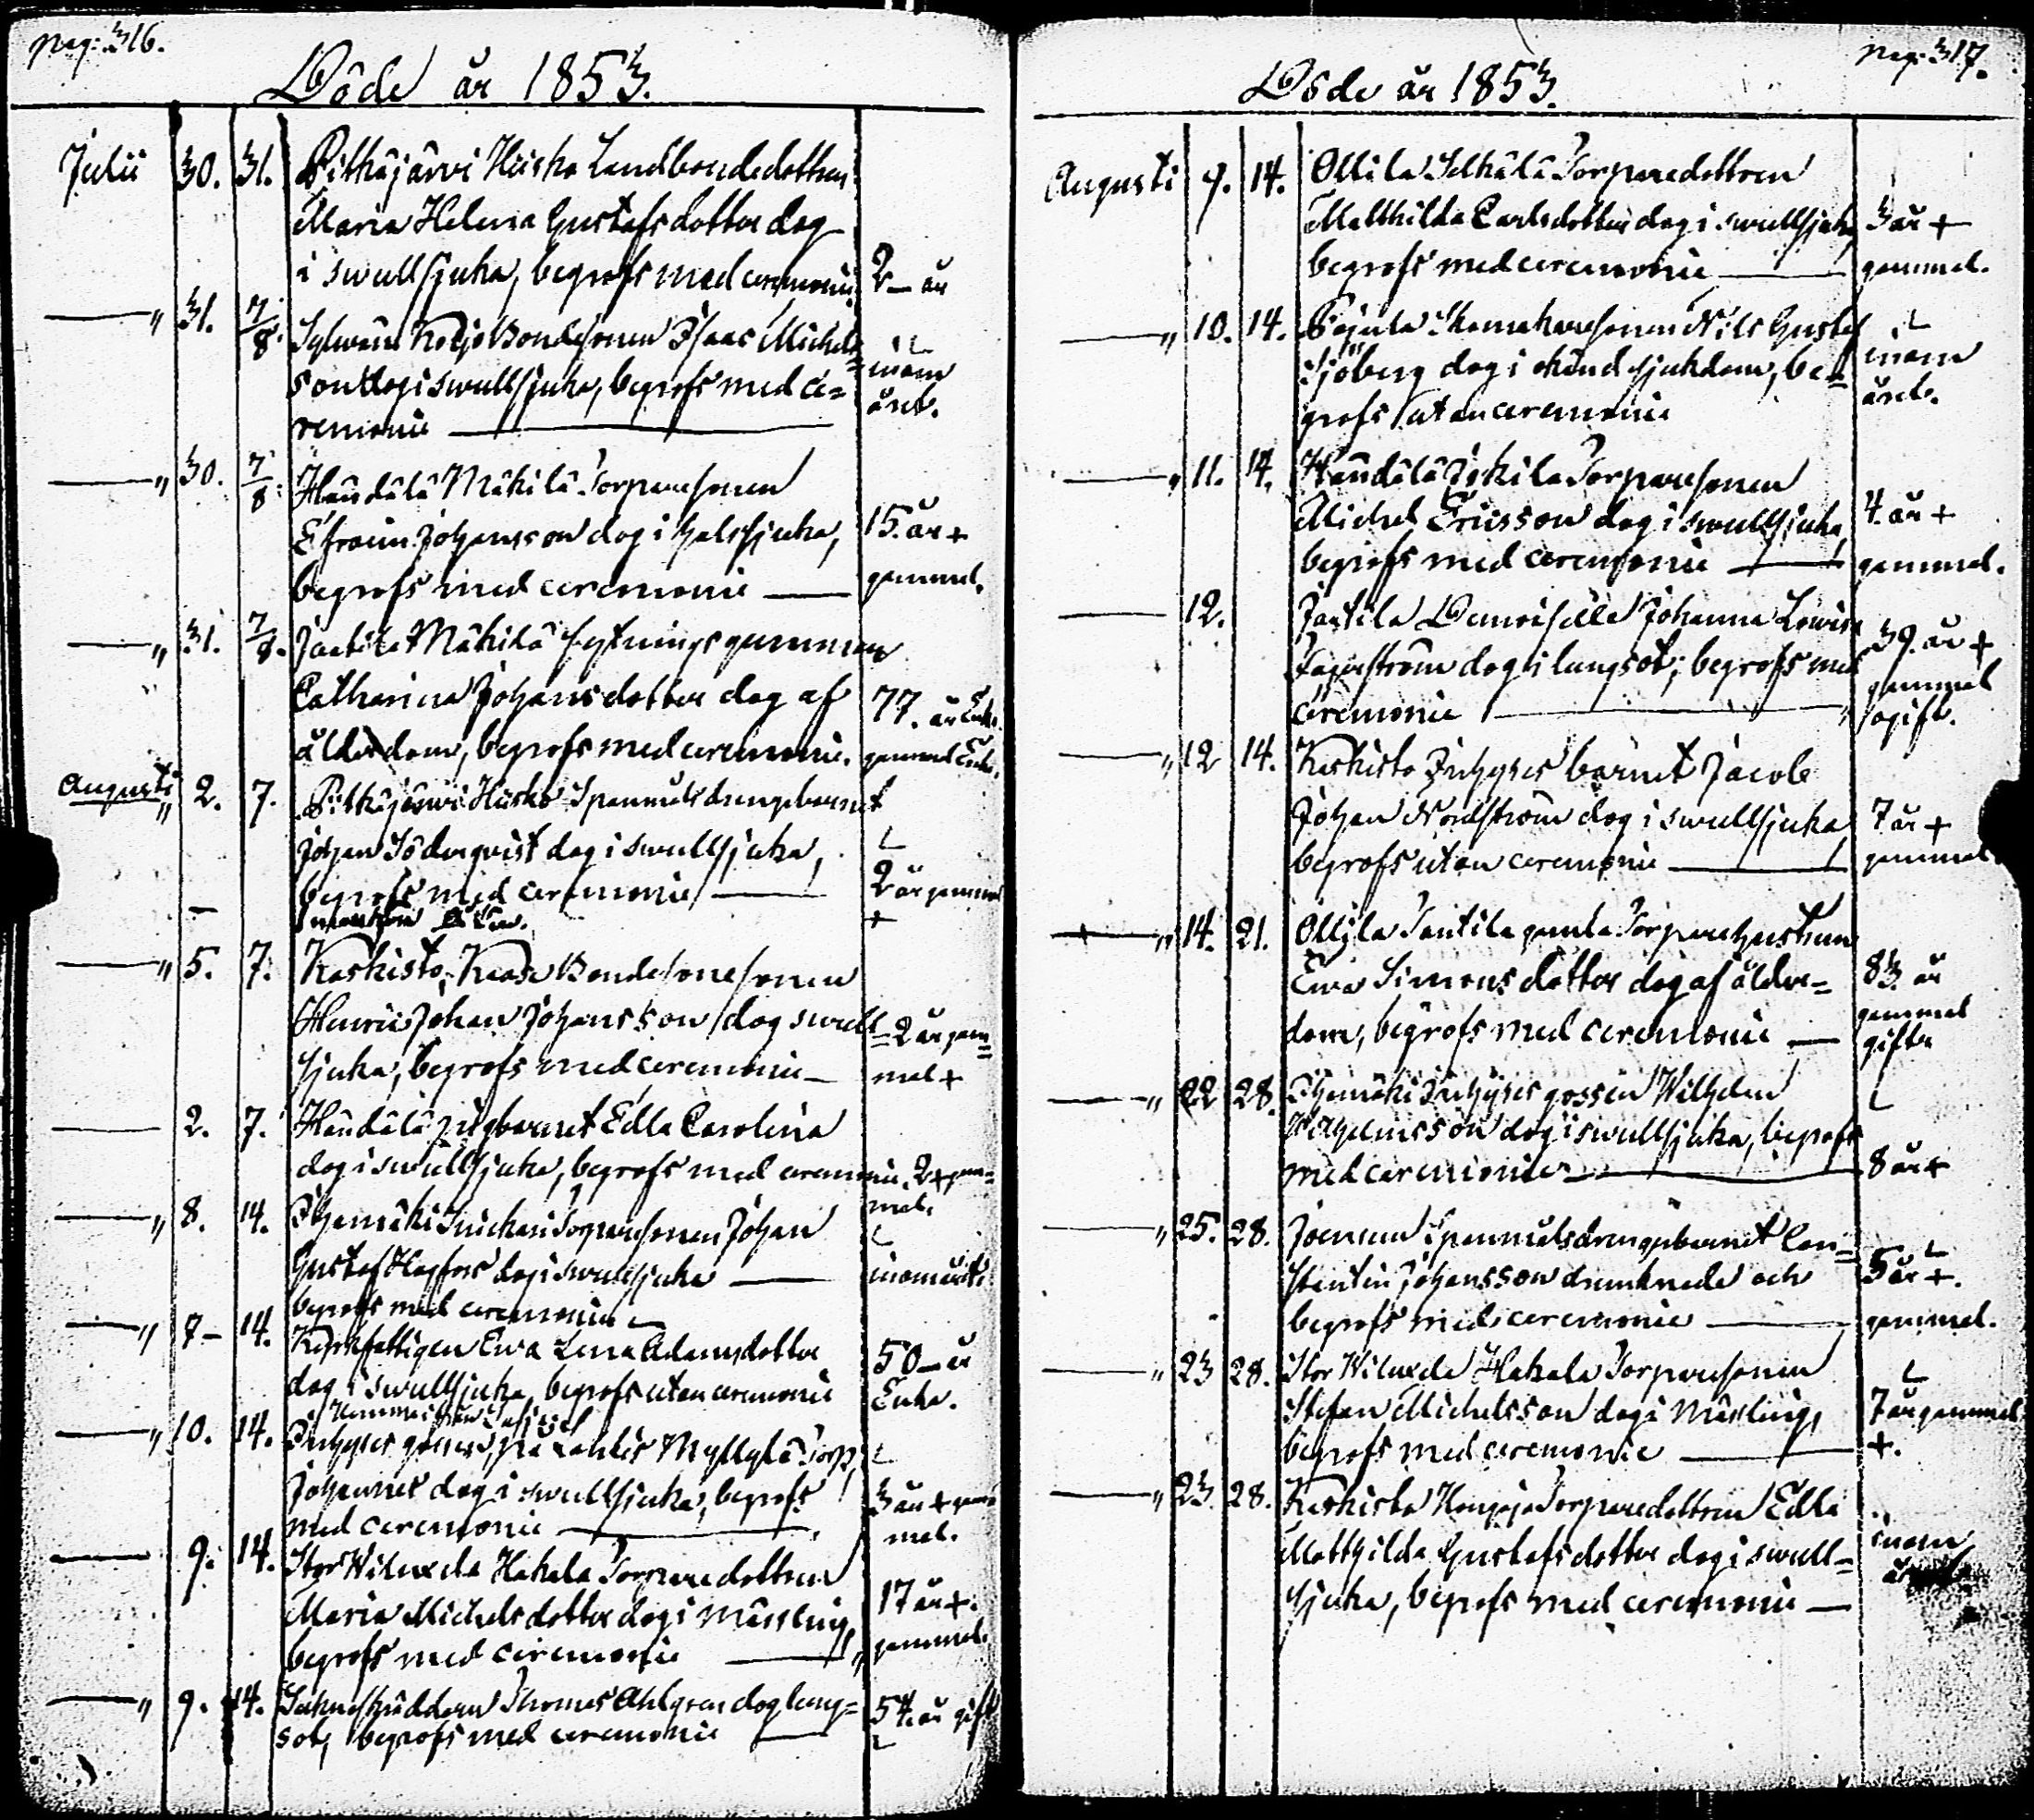 pag: 316.
Döde år 1853.
Julii 30. 31. Pitkäjärvi Huska Landbondedottren
Maria Helena Gustafsdotter dog
i swullsjuka, begrofs med ceremonie 2– år
—„ 31. 7/8. Kojo Bondesonen Isaac Michels
son dog i swullsjuka, begrofs med ce= inom
remonie — året.
—„ 30. 7/8. Handälä Mäkilä Torparesonen
Efraim Johansson dog i halssjuka, 15. år +
begrofs med ceremonie — gammal.
—„ 31. 7/8. Jaatila Mäkilä sytningsgumman
Catharina Johansdotter dog af 77. år Enka.
ålderdom, begrofs med ceremonie. gammal Enka.
Augusti „ 2. 7. Pitkäjärvi Huska Spanmålsdrängebarnet
Johan Söderqvist dog i swullsjuka,
begrofs med ceremonie — 2 år gammal
+
—„ 5. 7. Keskisto, Knaso Bondesonesonen
Henric Johan Johansson dog swull 2 år gam=
sjuka, begrofs med ceremonie – mal +
— 2. 7. Handälä pigbarnet Edla Carolina
dog i swullsjuka, begrofs med ceremonie. 2 + gam=
mal.
—„ 8. 14. Torparesonen Johan
Gustaf Hagfors dog i swullsjuka — inom året
begrofs med ceremonie
—„ 7– 14. Kyrkfattigen Ewa Lena Adamsdotter 50– år
dog i swullsjuka, begrofs utan ceremonie Enka.
—„ 10. 14. Inhyses gossen, på Myllylä Torp,
Johannes dog i swullsjuka, begrofs 3 år + gam=
med ceremonie —. mal.
— 9. 14. Stor Wiluxela Hakala Torparedottren
Maria Michelsdotter dog i mässling, 17 år +.
begrofs med ceremonie —„ gammal.
—„ 9. 14. Thomas Ahlgren dog lung=
sot, begrofs med ceremonie — 54. år gift
pag: 317.
Döde år 1853.
Augusti 9. 14. Ollila Torparedottren
Matthilda Carlsdotter dog i swullsjuka, 3 år +
begrofs med ceremonie — gammal.
—„ 10. 14. Nils Gustaf
Sjöberg dog i okänd sjukdom, be= inom
grofs utan ceremonie året.
—„ 11. 14. Handälä Jokila Torparesonen
Michel Ericsson dog i swullsjuka, 4. år +
begrofs med ceremonie — gammal.
— 12. Jaatila Demoiselle Johanna Lowisa 39. år +
Fagerström dog i lungsot; begrofs med gammal
ceremonie — ogift.
—„ 12 14. Keskisto Inhyses barnet Jacob
Johan Nordström dog i swullsjuka 7 år +
begrofs utan ceremonie — gammal
—„ 14. 21. Ollila Santila gamla Torparehustrun
Ewa Simonsdotter dog af ålder= 83 år
dom, begrofs med ceremonie — gammal
gift
—„ 22 28. Inhyses gossen Wilhelm
Wilhelmsson dog i swullsjuka, begrofs
med ceremonie — 8 år +
—„ 25. 28. Spanmålsdrängebarnet Con=
stantin Johansson drunknade och 5 år +.
begrofs med ceremonie — gammal.
—„ 23 28. Stor Wiluxela Hakala Torparesonen
Stefan Michelsson dog i Mässling, 7 år gammal
begrofs med ceremonie — +.
—„ 23. 28. Keskisto Torparedottren Edla
Matthilda Gustafsdotter dog i swull= inom
sjuka, begrofs med ceremonie —